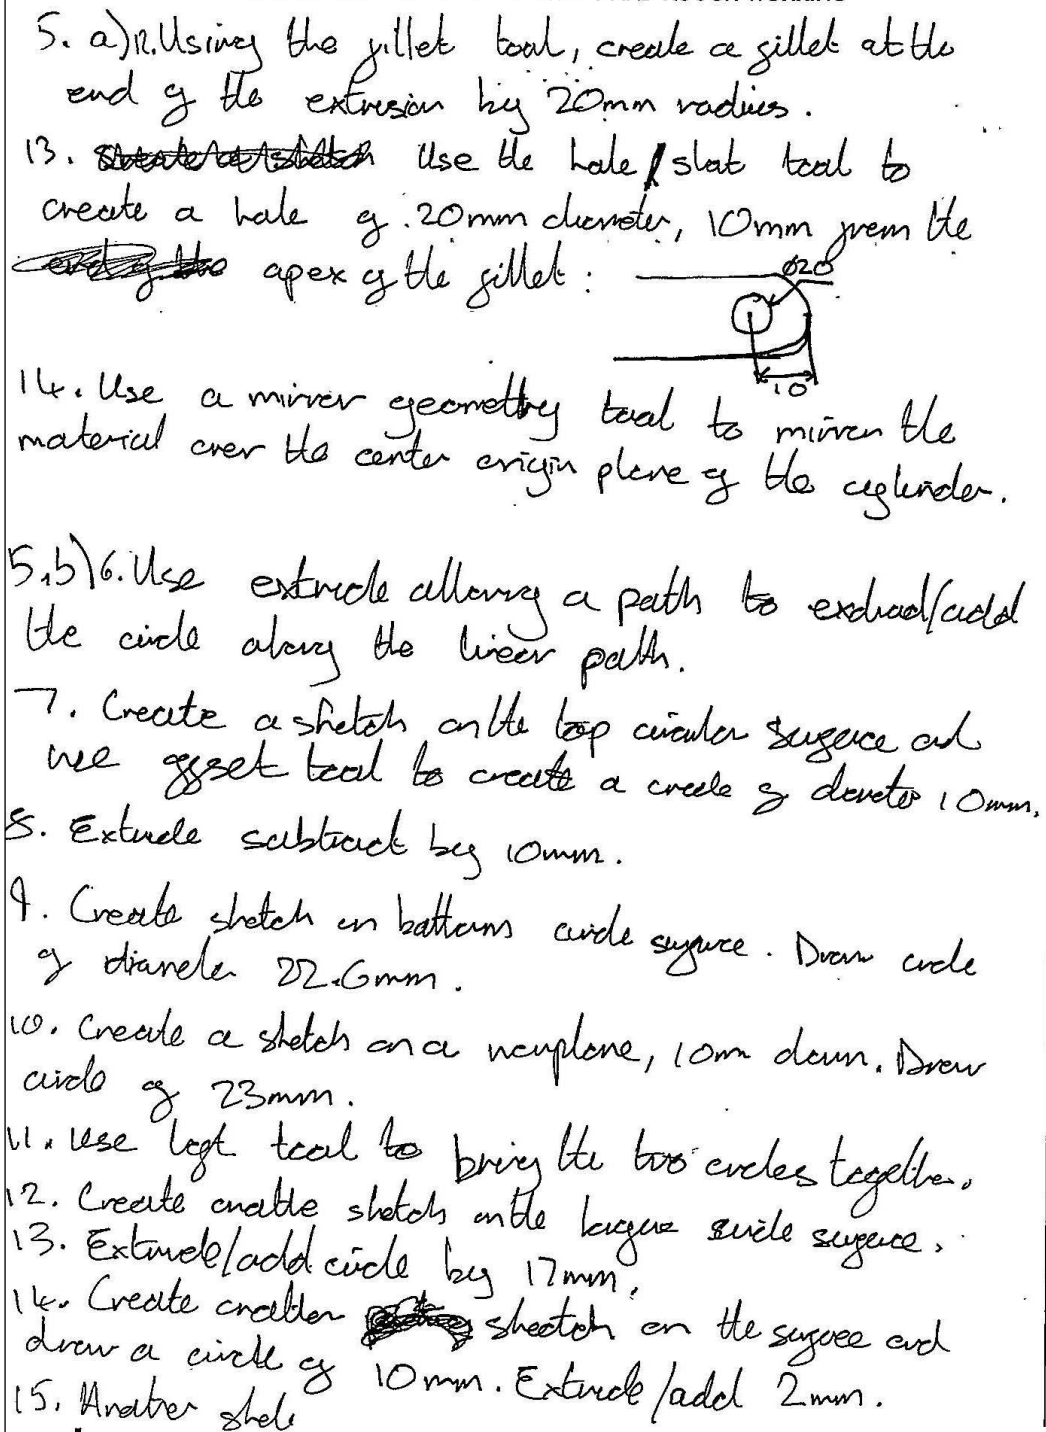 5. a) 12. Using the fillet tool, create a fillet at the
end of the extrusion by 20mm radius.
13. Use the hole/slot tool to
create a hole of 20mm diameter, 10mm from the
apex of the fillet:
Ø20
10
14. Use a mirror geometry tool to mirror the
material over the center origin plane of the cylinder.
5. b) 6. Use extrude allong a path to extrude/add
the circle along the linear path.
7. Create a sketch on the top circular surface and
use offset tool to create a circle of diameter 10mm.
8. Extrude subtract by 10mm.
9. Create sketch on bottom circle surface. Draw circle
of diameter 22.6mm.
10. Create a sketch on a new plane, 10mm down. Draw
circle of 23mm.
11. Use loft tool to bring the two circles together.
12. Create another sketch on the surface.
13. Extrude/add circle by 17mm.
14. Create another sketch on the surface and
draw a circle of 10mm. Extrude/add 2mm.
15. Another